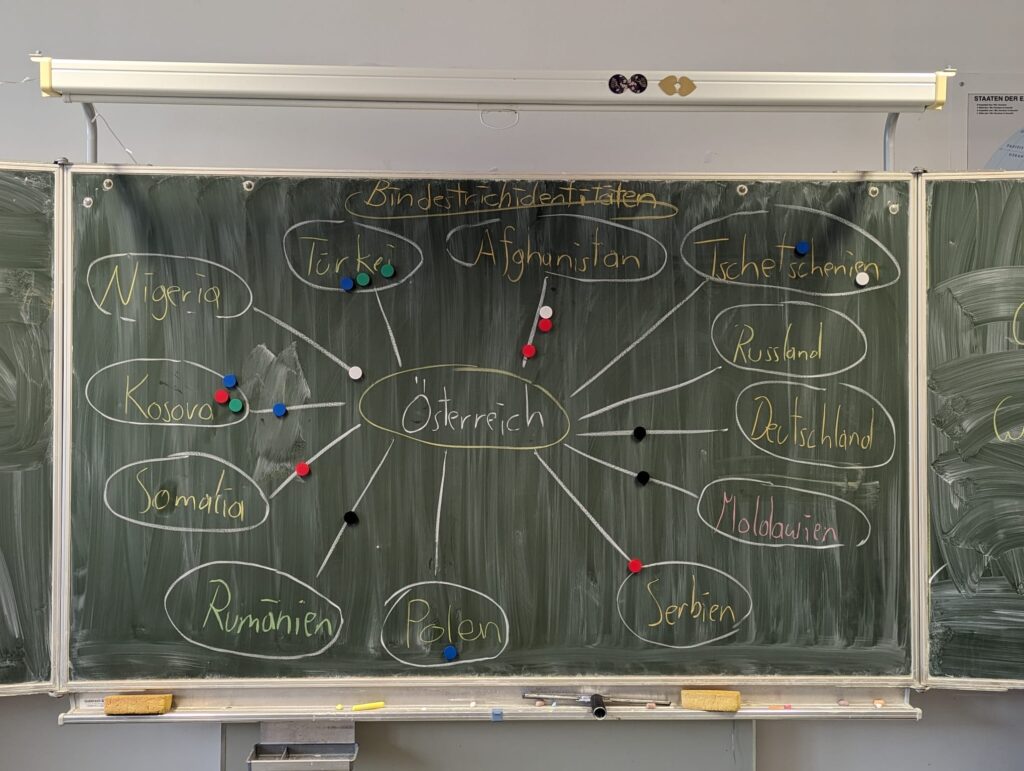 STAATEN DER E
Bindestrichidentitäten
Türkei
Afghanistan
Tschetschenien
Nigeria
Russland
Kosovo
Österreich
Deutschland
Somalia
Moldawien
Rumänien
Polen
Serbien